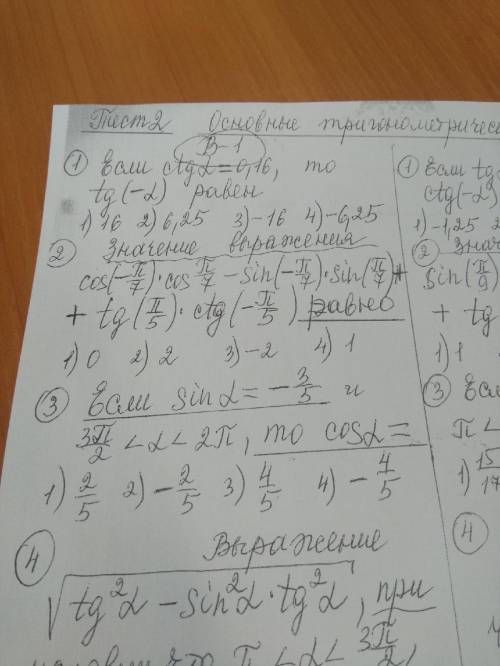 Тест 2 Основные тригонометричес
В-1
① Если ctgα=0,16, то
tg(-α) равен
1) 16 2) 6,25 3) -16 4) -6,25
② Значение выражения
cos(-π/7)·cos π/7 - sin(-π/7)·sin(π/7)+
+ tg(π/5)·ctg(-π/5) равно
1) 0 2) 2 3) -2 4) 1
③ Если sinα = -3/5 и
3π/2 <α< 2π, то cosα=
1) 2/5 2) -2/5 3) 4/5 4) -4/5
④ Выражение
√(tg²α - sin²α·tg²α), при
π <α< 3π/2
① Если tg
ctg(-α)
1) -1,25
② Знач
sin(π/9)
+ tg
1) 1
③ Если
π <
1) 15/17
④